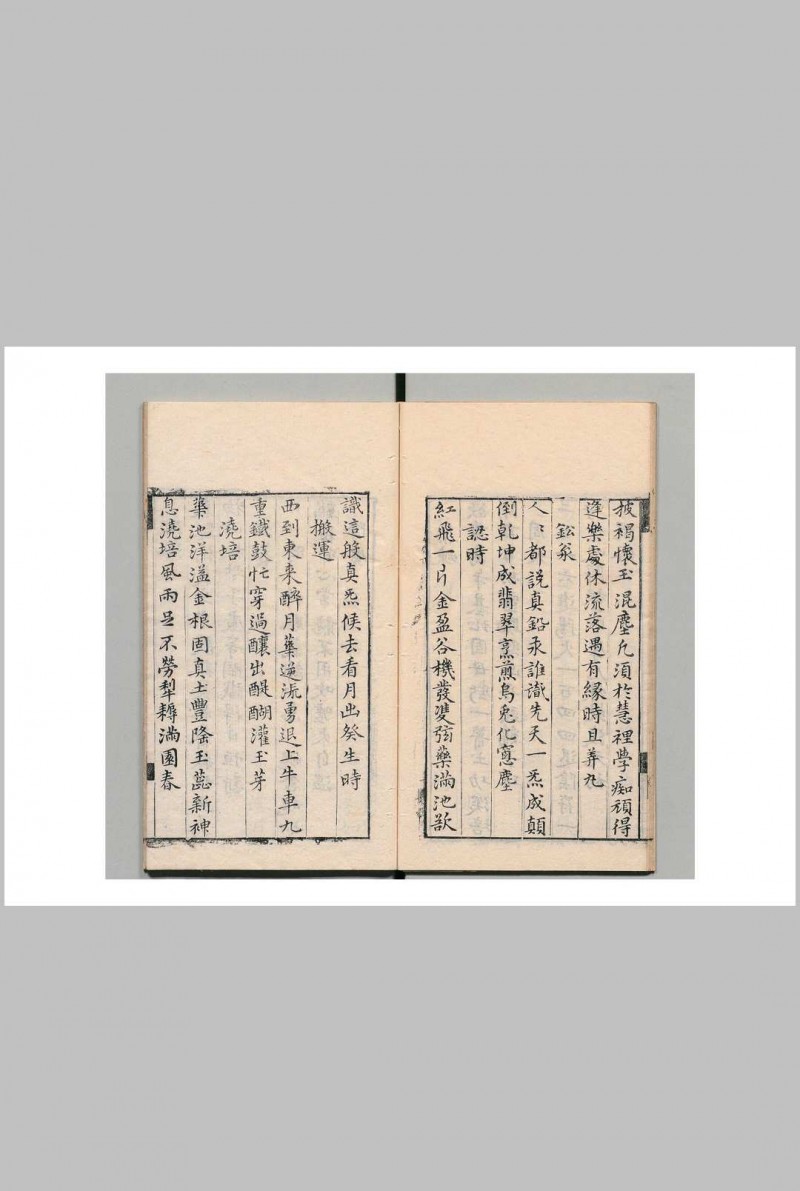 披褐懷玉混塵凢須於慧裡學痴頑得
逢樂處休流落遇有緣時且弄丸
鈆汞
人〻都說真鉛汞誰識先天一炁成顛
倒乾坤成翡翠烹煎烏兎化寔塵
認時
紅飛一片金盈谷機發雙弦藥滿池欲
識這般真炁候去看月出癸生時
搬運
西到東来醉月華逆流勇退上牛車九
重鐵鼓忙穿過釀出醍醐灌玉芽
澆培
華池洋溢金根固真土豐隆玉蕊新神
息澆培風雨足不勞犁耨滿園春